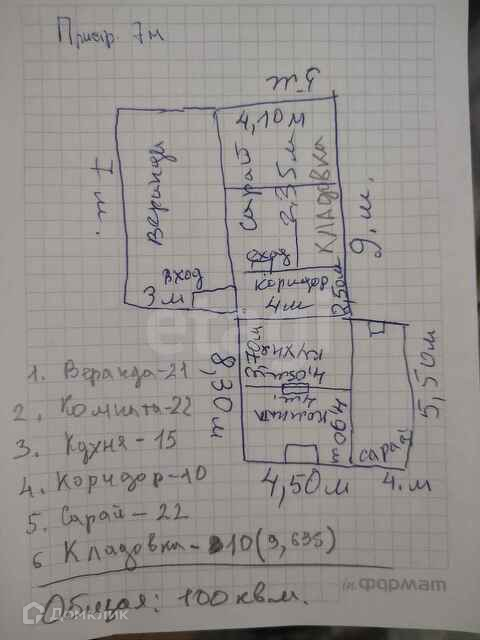 Пристр. 7м
5 м
4,10 м
Веранда
7 м.
сарай
2,35 м
кладовка
9. м.
вход
вход
3 м
коридор
4 м
2,50 м
3,70 м
кухня
4,05 м
8,30 м
комната
4,90 м
5,50 м
сарай
4,50 м
4. м
1. Веранда-21
2. Комната-22
3. Кухня-15
4. Коридор-10
5. Сарай-22
6 Кладовка-10(9,635)
Общая: 100 кв м.
формат
Домклик